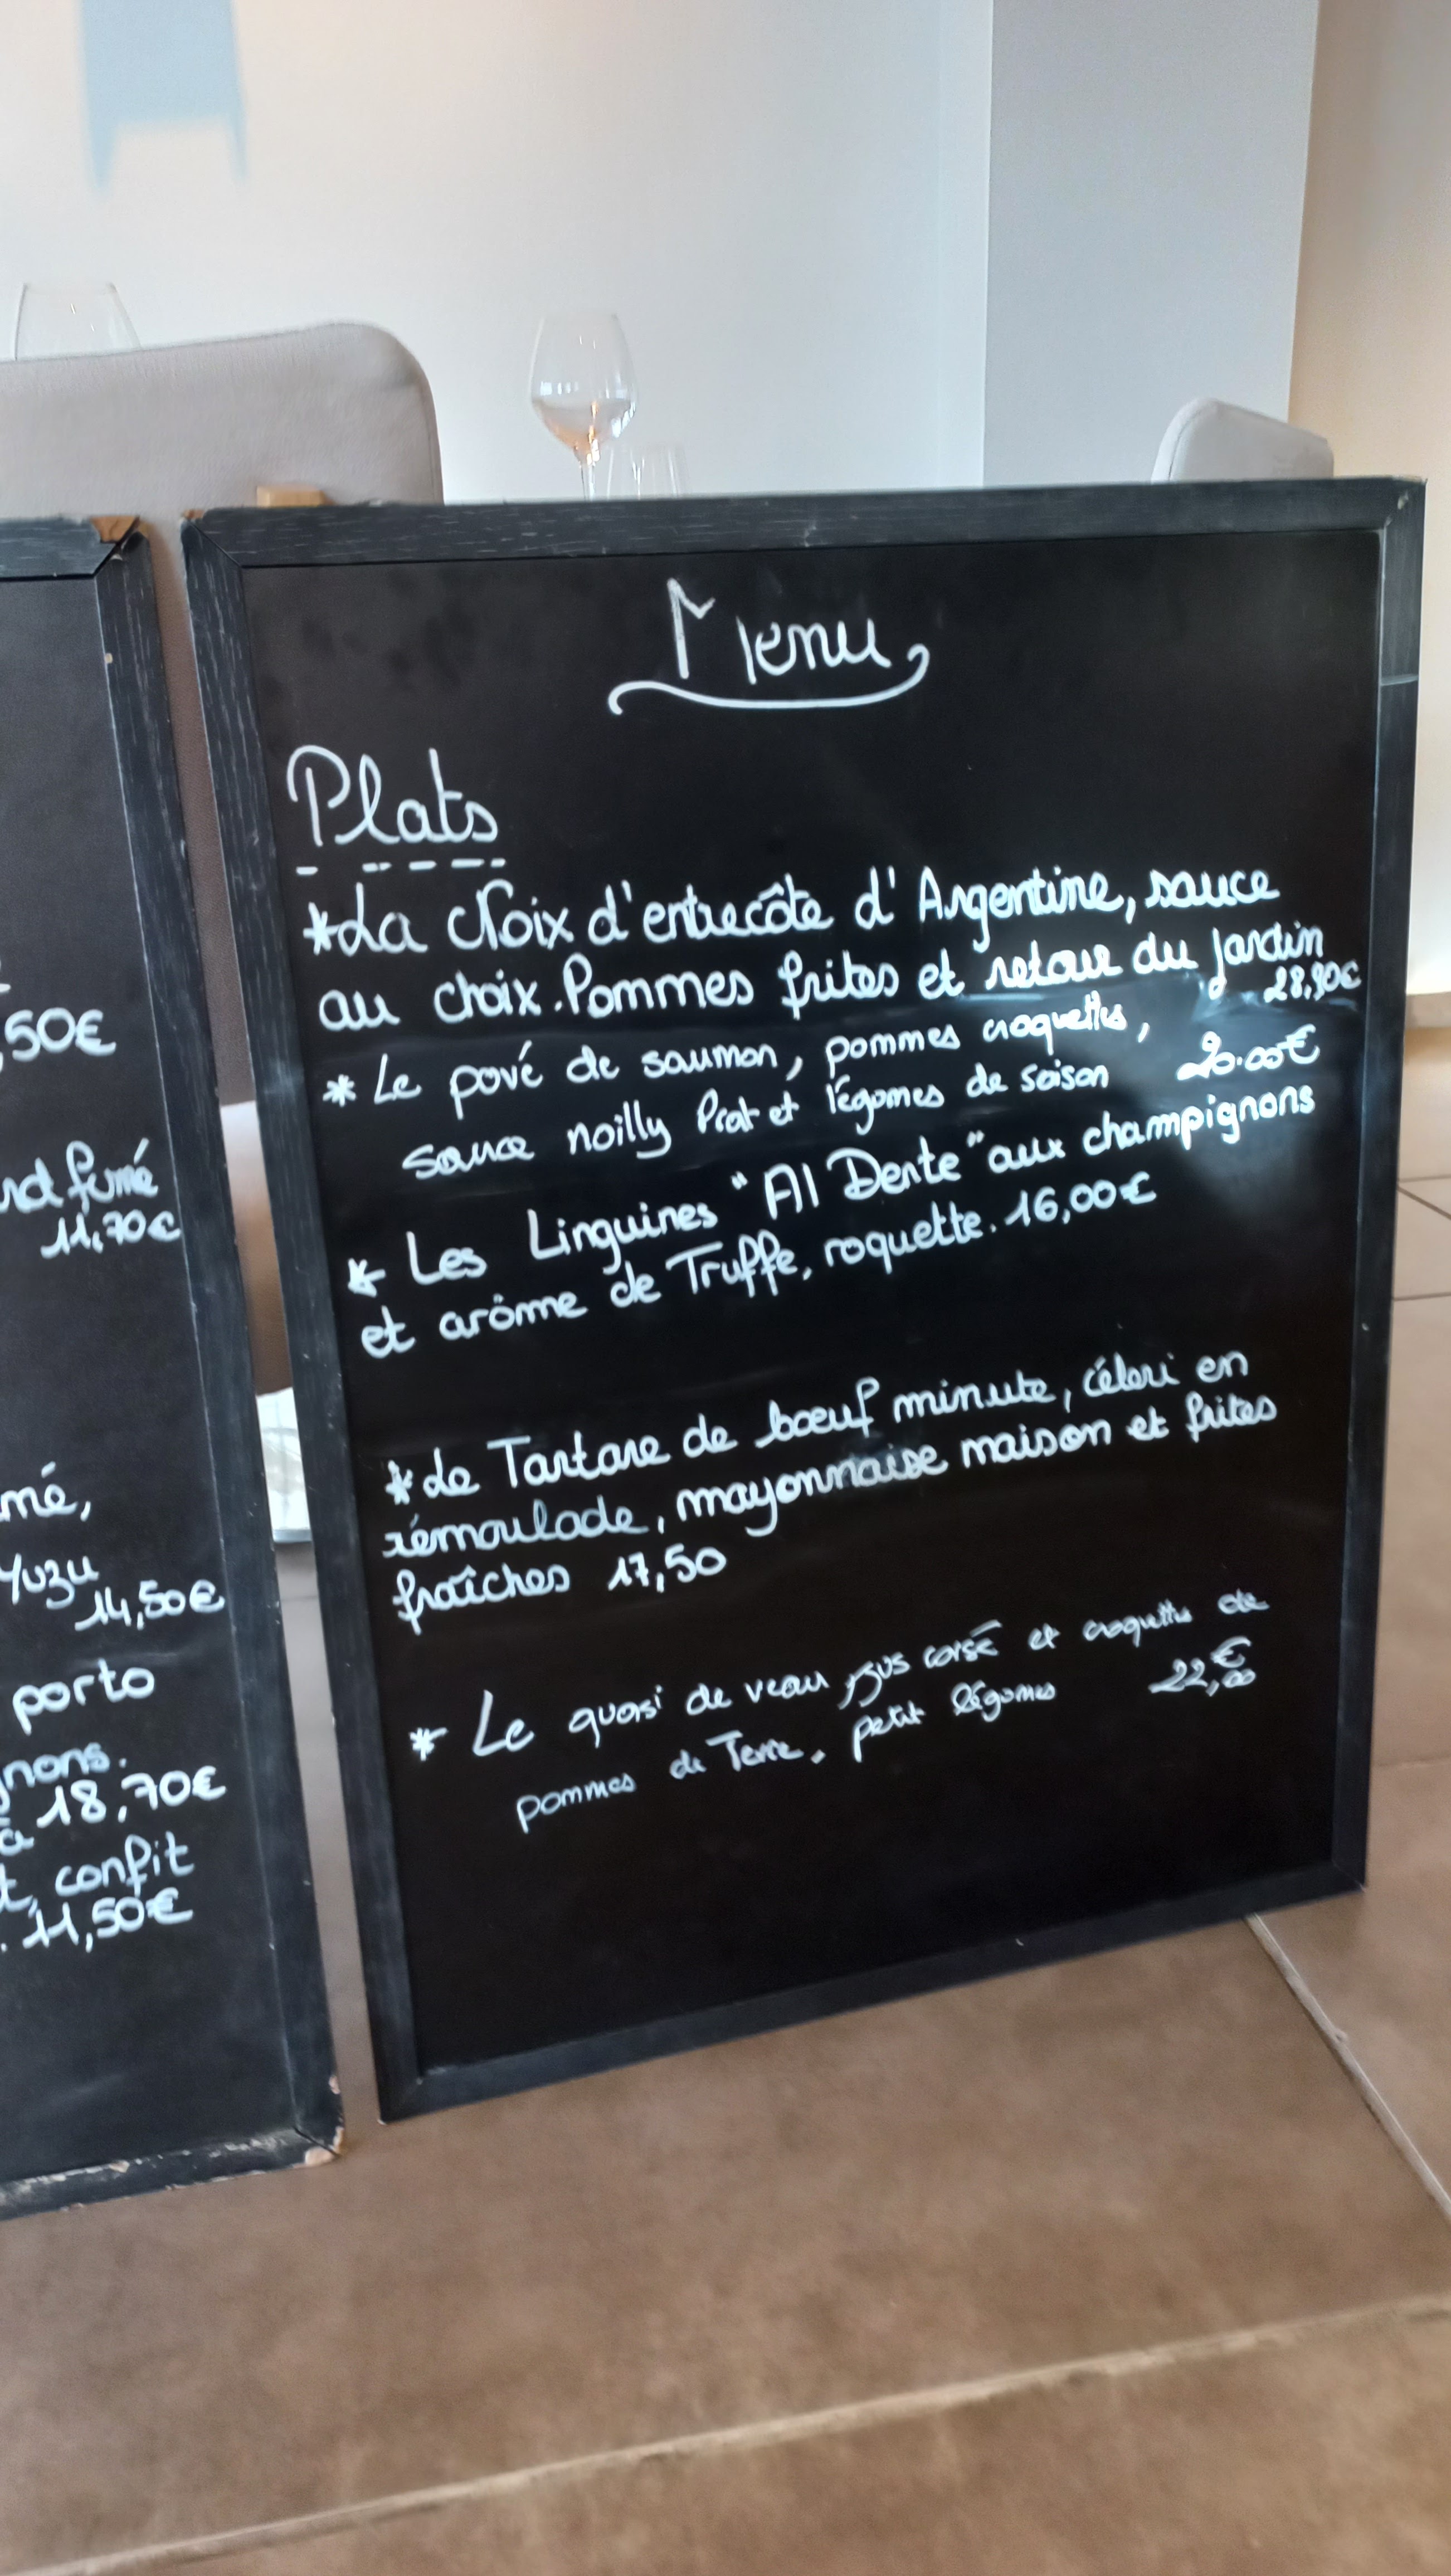 ,50€
rd fumé
11,70€
mé,
Yuzu
14,50€
porto
gnons.
à 18,70€
t, confit
. 11,50€
Menu
Plats
*La Noix d'entrecôte d'Argentine, sauce
au choix. Pommes frites et retour du jardin
28,90€
* Le pavé de saumon, pommes croquettes,
sauce noilly Prat et légumes de saison 20.00€
* Les Linguines "Al Dente" aux champignons
et arôme de Truffe, roquette. 16,00€
*Le Tartare de bœuf minute, céleri en
rémoulade, mayonnaise maison et frites
fraîches 17,50
* Le quasi de veau jus corsé et croquettes de
pommes de Terre, petit légumes 22,00€